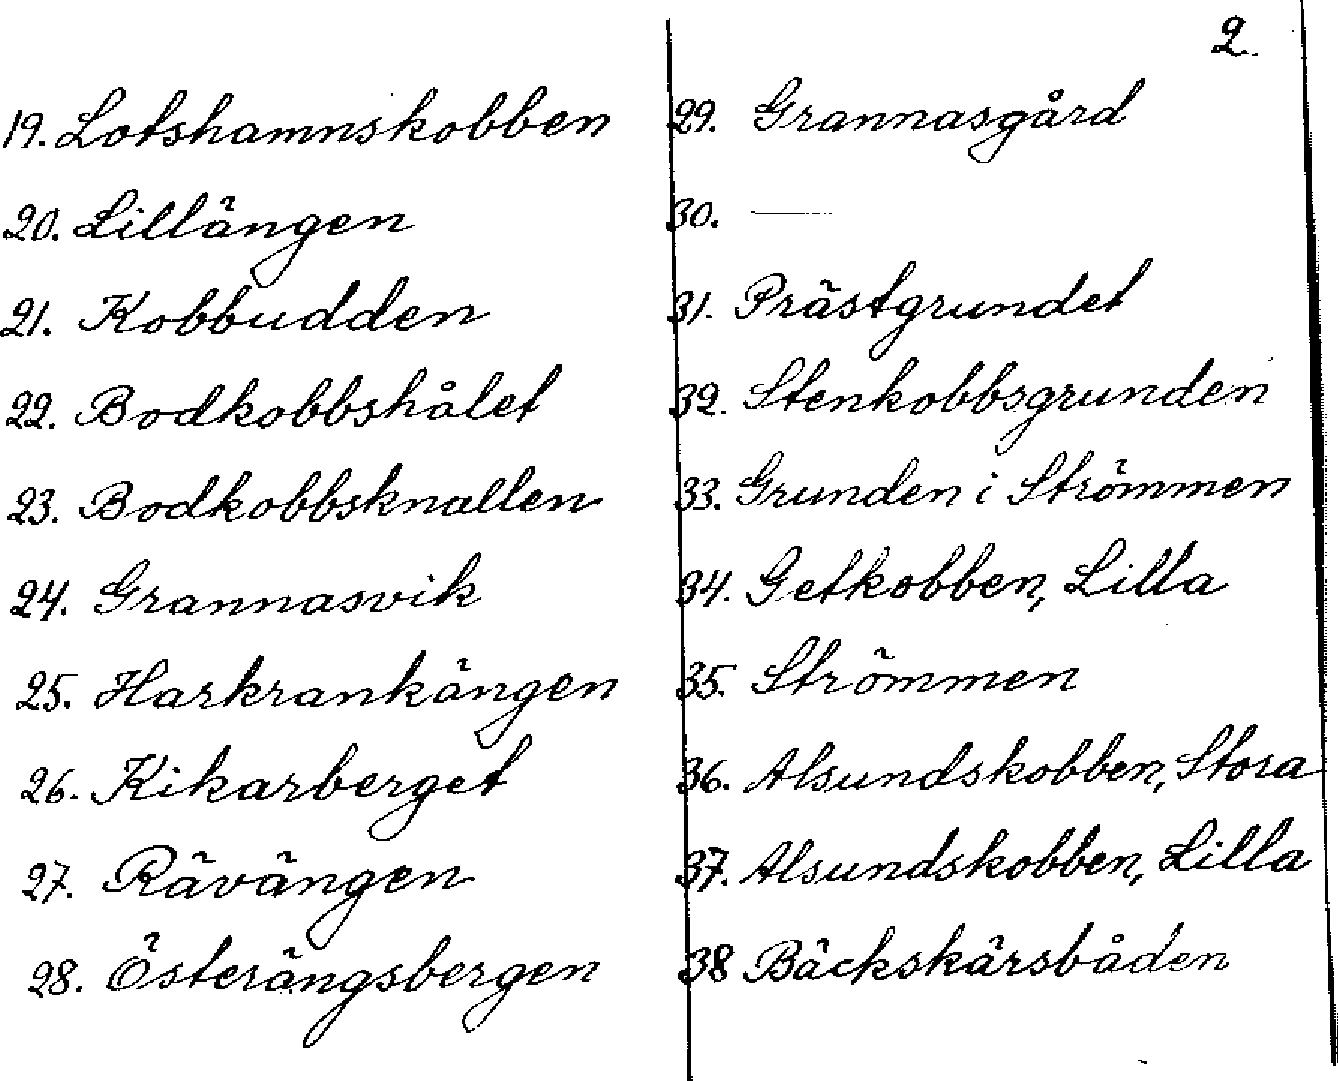 2.
19. Lotshamnskobben
20. Lillängen
21. Kobbudden
22. Bodkobbshålet
23. Bodkobbsknallen
24. Grannasvik
25. Harkrankängen
26. Kikarberget
27. Rävängen
28. Österängsbergen
29. Grannasgård
30. —
31. Prästgrundet
32. Stenkobbsgrunden
33. Grunden i Strömmen
34. Getkobben, Lilla
35. Strömmen
36. Alsundskobben, Stora
37. Alsundskobben, Lilla
38 Bäckskärsbåden